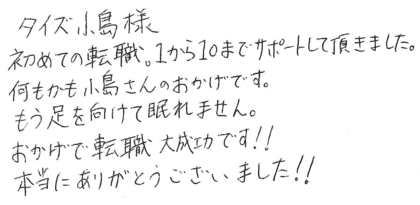 タイズ小島様
初めての転職。1から10までサポートして頂きました。
何もかも小島さんのおかげです。
もう足を向けて眠れません。
おかげで転職大成功です!!
本当にありがとうございました!!